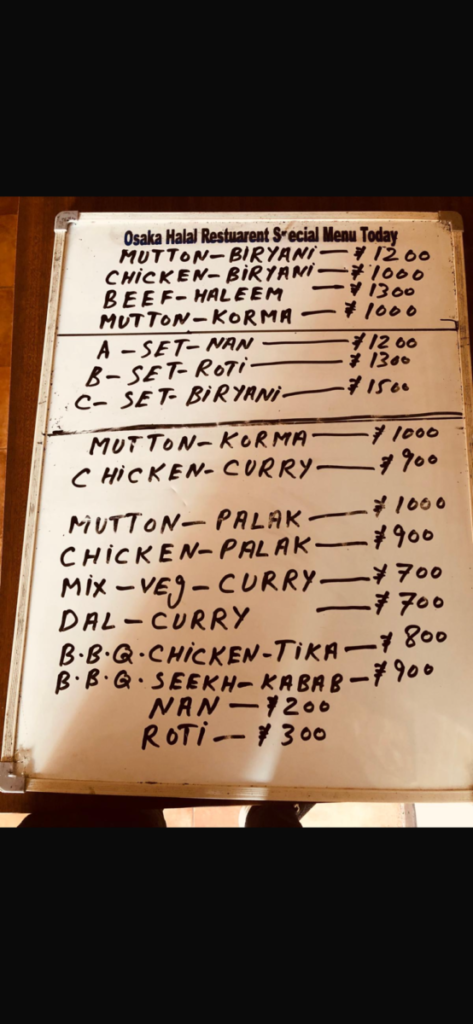 Osaka Halal Restuarent Special Menu Today
MUTTON-BIRYANI — ¥1200
CHICKEN-BIRYANI — ¥1000
BEEF-HALEEM — ¥1300
MUTTON-KORMA — ¥1000
A-SET-NAN — ¥1200
B-SET-ROTI — ¥1300
C-SET-BIRYANI — ¥1500
MUTTON-KORMA — ¥1000
CHICKEN-CURRY — ¥900
MUTTON-PALAK — ¥1000
CHICKEN-PALAK — ¥900
MIX-VEG-CURRY — ¥700
DAL-CURRY — ¥700
B.B.Q.CHICKEN-TIKA — ¥800
B.B.Q.SEEKH-KABAB — ¥900
NAN — ¥200
ROTI — ¥300